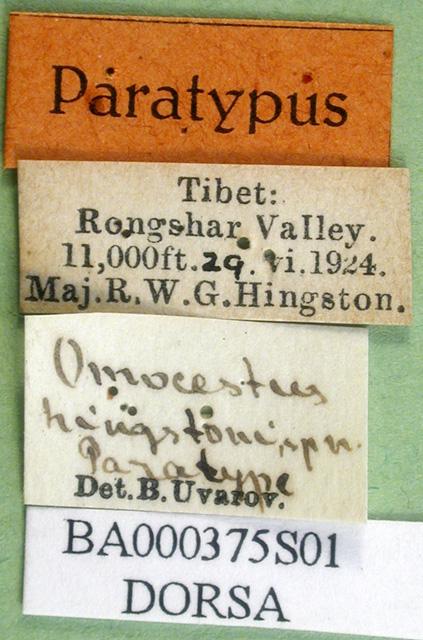 Paratypus
Tibet:
Rongshar Valley.
11,000ft. 29. vi.1924.
Maj. R. W. G. Hingston.
Omocestus
hingstoni, sp n.
Paratype
Det. B. Uvarov.
BA000375S01
DORSA